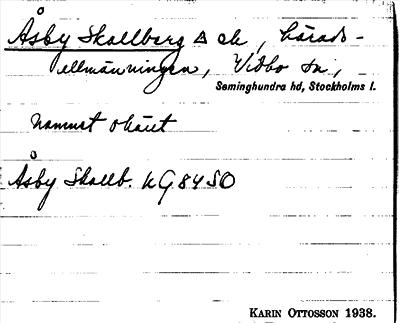 Åsby Skallberg △ ek, härads-
allmänningen, Vidbo sn,
Seminghundra hd, Stockholms l.
Namnet okänt
Åsby Skallb. NG84SO
KARIN OTTOSSON 1938.